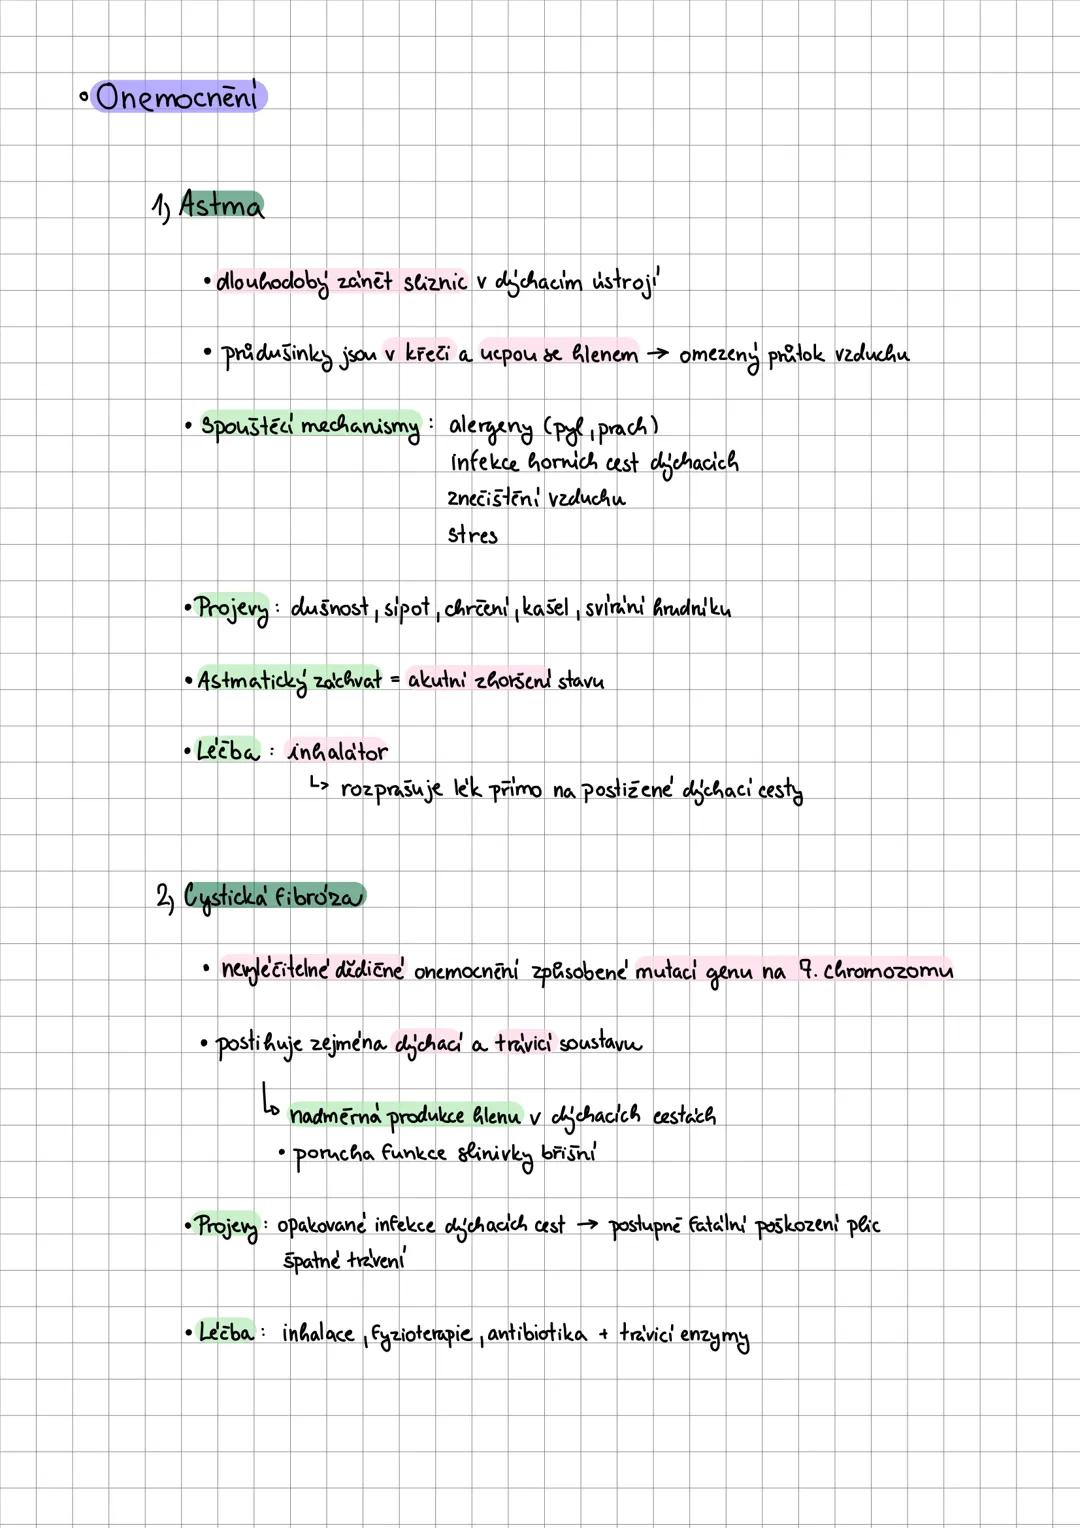 • Onemocnění
1) Astma
• dlouhodobý zánět sliznic v dýchacím ústrojí
• průdušinky jsou v křeči a ucpou se hlenem → omezený průtok vzduchu
• Spouštěcí mechanismy : alergeny (pyl, prach)
infekce horních cest dýchacích
znečištění vzduchu
stres
• Projevy : dušnost, sípot, chrčení, kašel, svírání hrudníku
• Astmatický záchvat = akutní zhoršení stavu
• Léčba : inhalátor
↳ rozprašuje lék přímo na postižené dýchací cesty
2) Cystická fibróza
• nevyléčitelné dědičné onemocnění způsobené mutací genu na 7. chromozomu
• postihuje zejména dýchací a trávicí soustavu
↳ nadměrná produkce hlenu v dýchacích cestách
• porucha funkce slinivky břišní
• Projevy : opakované infekce dýchacích cest → postupně fatální poškození plic
špatné trávení
• Léčba : inhalace, fyzioterapie, antibiotika + trávicí enzymy